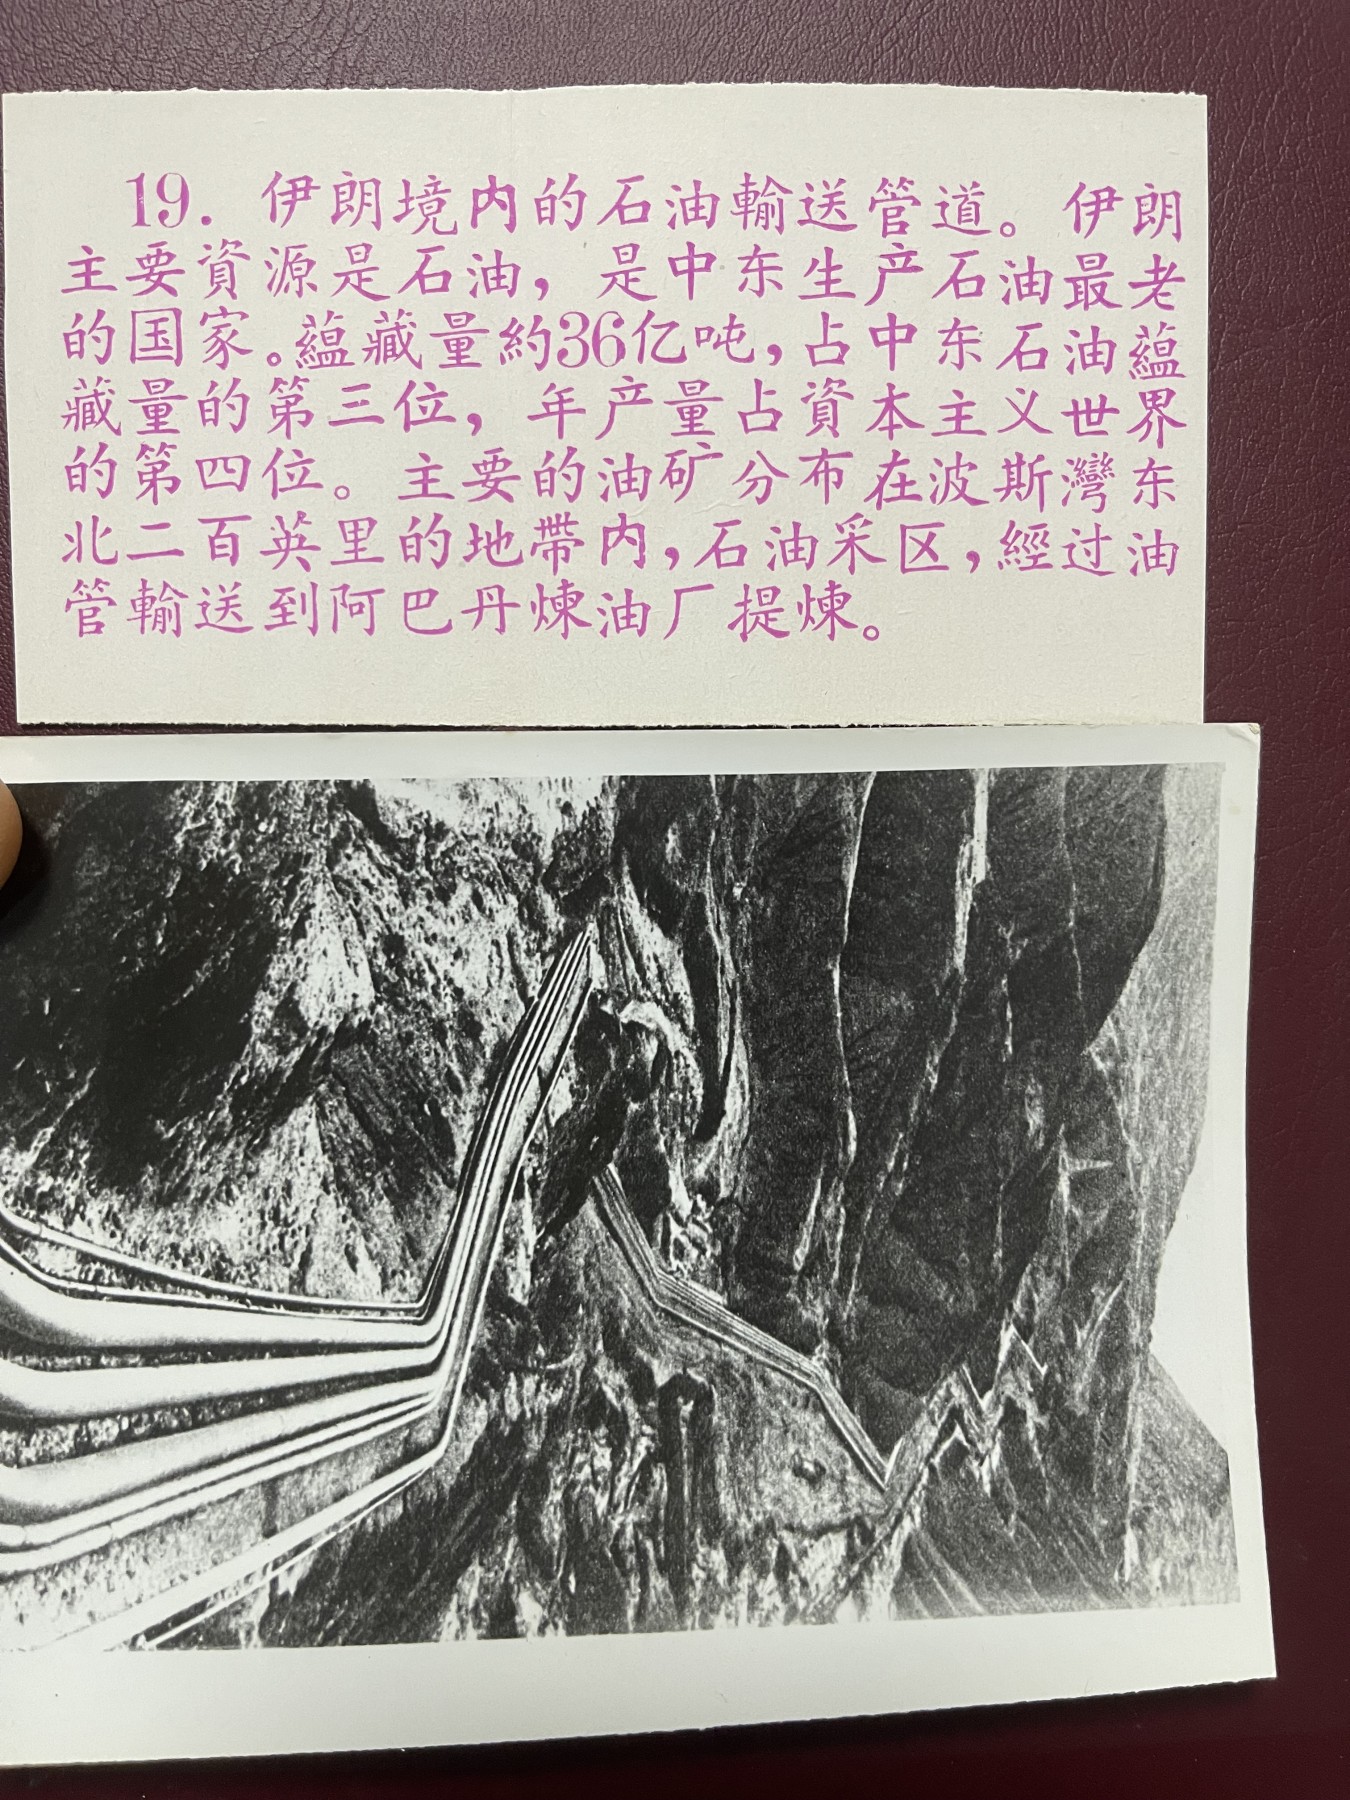 19. 伊朗境内的石油輸送管道。伊朗
主要資源是石油，是中东生产石油最老
的国家。蕴藏量約36亿吨，占中东石油蕴
藏量的第三位，年产量占資本主义世界
的第四位。主要的油矿分布在波斯灣东
北二百英里的地帶内，石油采区，經过油
管輸送到阿巴丹煉油厂提煉。